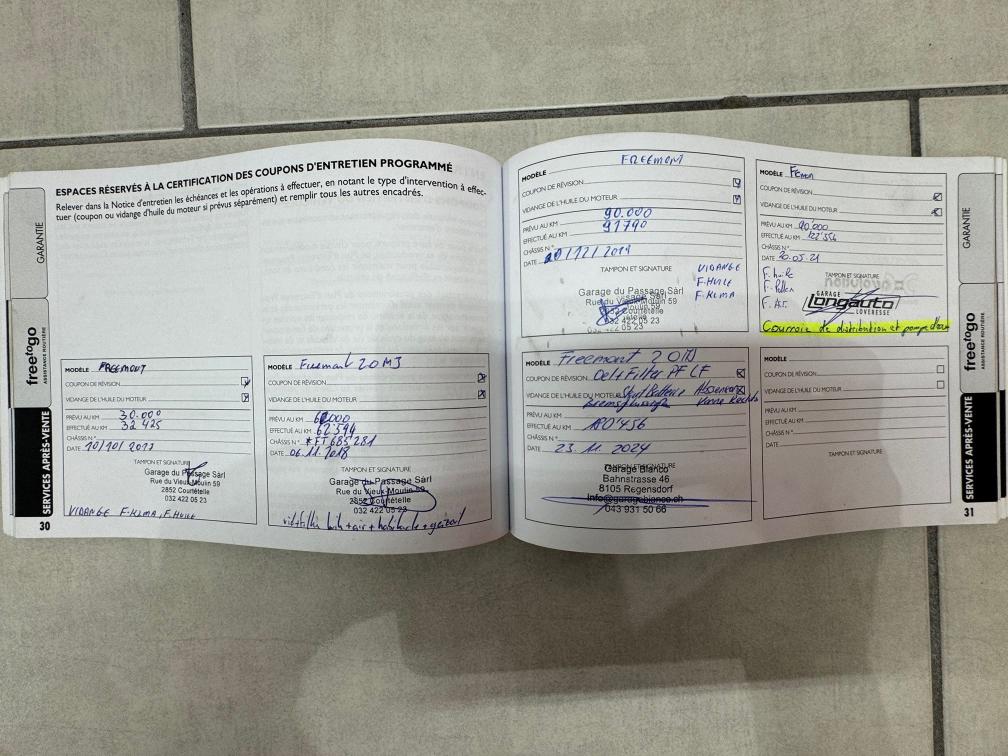 ESPACES RÉSERVÉS À LA CERTIFICATION DES COUPONS D'ENTRETIEN PROGRAMMÉ
Relever dans la Notice d'entretien les échéances et les opérations à effectuer, en notant le type d'intervention à effec-
tuer (coupon ou vidange d'huile du moteur si prévus séparément) et remplir tous les autres encadrés.
GARANTIE
freetogo
ASSISTANCE ROUTIÈRE
SERVICES APRÈS-VENTE
30
MODÈLE FREEMONT
COUPON DE RÉVISION
VIDANGE DE L'HUILE DU MOTEUR
PRÉVU AU KM 30.000
EFFECTUÉ AU KM 32 425
CHÂSSIS N°
DATE 10/10/2017
TAMPON ET SIGNATURE
Garage du Passage Sàrl
Rue du Vieux-Moulin 59
2852 Courtételle
032 422 05 23
VIDANGE F-KLMA, F.HUILE
MODÈLE Freemont 2.0 MJ
COUPON DE RÉVISION
VIDANGE DE L'HUILE DU MOTEUR
PRÉVU AU KM 60000
EFFECTUÉ AU KM 62'594
CHÂSSIS N° *FT685281
DATE 06.11.2018
TAMPON ET SIGNATURE
Garage du Passage Sàrl
Rue du Vieux-Moulin 59
2852 Courtételle
032 422 05 23
+ air + habitacle + gazoil
MODÈLE FREEMONT
COUPON DE RÉVISION
VIDANGE DE L'HUILE DU MOTEUR
PRÉVU AU KM 90.000
EFFECTUÉ AU KM 91790
CHÂSSIS N°
DATE 20/12/2019
TAMPON ET SIGNATURE
Garage du Passage Sàrl
Rue du Vieux-Moulin 59
032 422 05 23
VIDANGE
F-HUILE
F-KLMA
MODÈLE
COUPON DE RÉVISION
VIDANGE DE L'HUILE DU MOTEUR
PRÉVU AU KM 90'000
EFFECTUÉ AU KM 122'554
CHÂSSIS N°
DATE 20.05.21
TAMPON ET SIGNATURE
F. huile
F. Pollen
F. Air
GARAGE
Longauto
LOVERESSE
Courroie de distribution et pompe d'eau
MODÈLE Freemont 2.0
COUPON DE RÉVISION Oel+Filter PF LF
VIDANGE DE L'HUILE DU MOTEUR Start Batterie
Bremsflüssigk Vorne Rechts
PRÉVU AU KM
EFFECTUÉ AU KM 180'456
CHÂSSIS N°
DATE 23.11.2024
TAMPON ET SIGNATURE
Garage Bianco
Bahnstrasse 46
8105 Regensdorf
info@garagebianco.ch
043 931 50 66
MODÈLE
COUPON DE RÉVISION
VIDANGE DE L'HUILE DU MOTEUR
PRÉVU AU KM
EFFECTUÉ AU KM
CHÂSSIS N°
DATE
TAMPON ET SIGNATURE
GARANTIE
freetogo
ASSISTANCE ROUTIÈRE
SERVICES APRÈS-VENTE
31